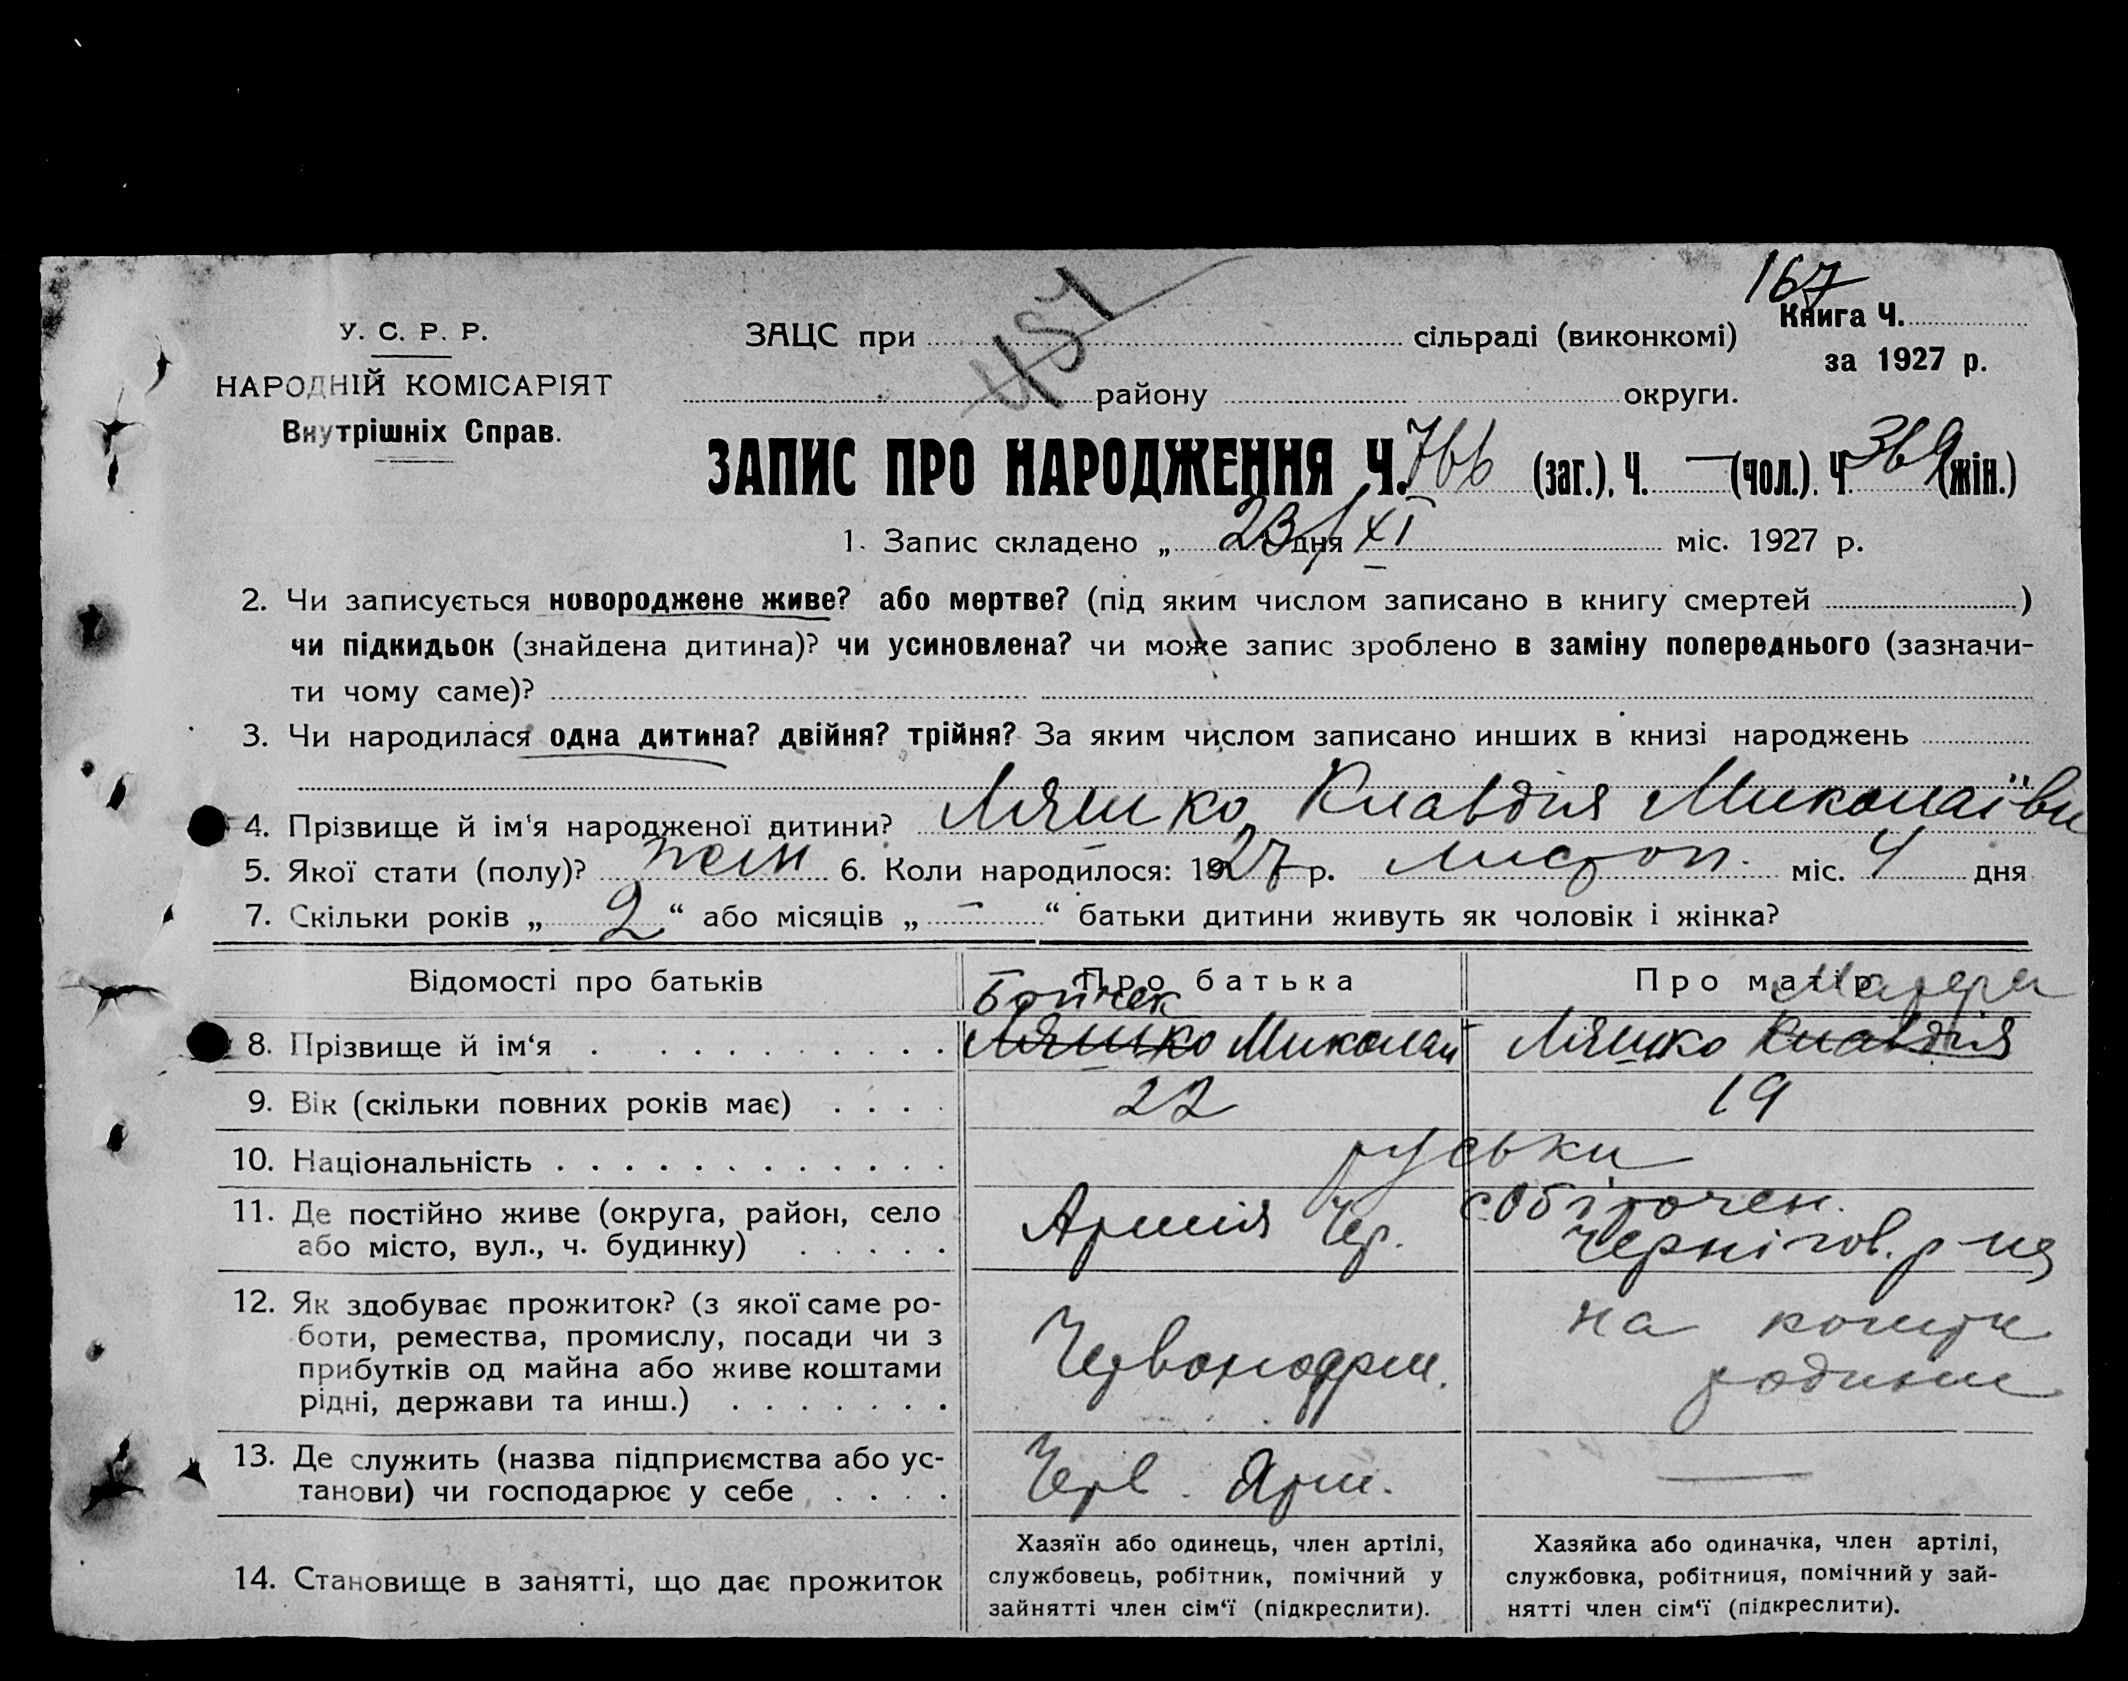 167
У. С. Р. Р.
ЗАЦС при сільраді (виконкомі) Книга Ч.
за 1927 р.
НАРОДНІЙ КОМІСАРІЯТ
району округи.
Внутрішніх Справ.
ЗАПИС ПРО НАРОДЖЕННЯ Ч. 766 (заг.), Ч. — (чол.), Ч. 369 (жін.)
1. Запис складено „ 23 дня XI міс. 1927 р.
2. Чи записується новороджене живе? або мертве? (під яким числом записано в книгу смертей )
чи підкидьок (знайдена дитина)? чи усиновлена? чи може запис зроблено в заміну попереднього (зазначи-
ти чому саме)?
3. Чи народилася одна дитина? двійня? трійня? За яким числом записано инших в книзі народжень
4. Прізвище й ім'я народженої дитини? Ляшко Клавдія Миколаївн
5. Якої стати (полу)? жін 6. Коли народилося: 1927 р. листоп. міс. 4 дня
7. Скільки років „ 2 “ або місяців „ — “ батьки дитини живуть як чоловік і жінка?
Відомості про батьків Про батька Про матір
8. Прізвище й ім‘я Ляшко Миколай Ляшко Клавдія
9. Вік (скільки повних років має) 22 19
10. Національність руськи
11. Де постійно живе (округа, район, село
або місто, вул., ч. будинку) Армія Чер. Чернігов. р-на
12. Як здобуває прожиток? (з якої саме ро-
боти, ремества, промислу, посади чи з
прибутків од майна або живе коштами
рідні, держави та инш.) Червоноарм. на кошти
родини
13. Де служить (назва підприємства або ус-
танови) чи господарює у себе Черв. Арм. —
14. Становище в занятті, що дає прожиток
Хазяїн або одинець, член артілі,
службовець, робітник, помічний у
зайнятті член сім‘ї (підкреслити).
Хазяйка або одиначка, член артілі,
службовка, робітниця, помічний у зай-
нятті член сім‘ї (підкреслити).